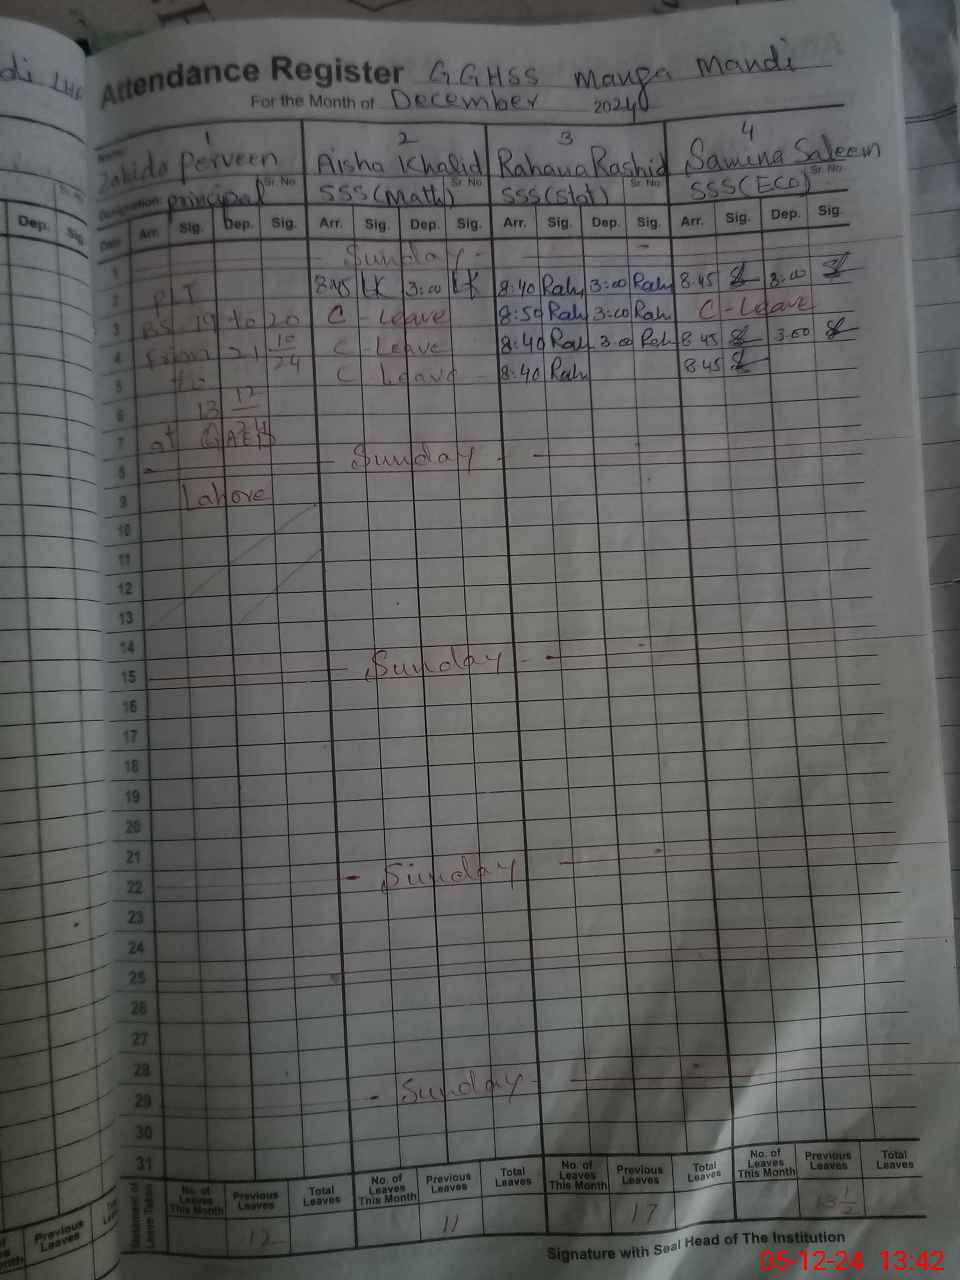 Attendance Register GGHSS Manga Mandi
For the Month of December 2024
1 2 3 4
Zahida Perveen Aisha Khalid Rahana Rashid Samina Saleem
Designation: principal Sr. No SSS(Math) Sr. No SSS(Stat) Sr. No SSS(ECO) Sr. No
Date Arr. Sig. Dep. Sig. Arr. Sig. Dep. Sig. Arr. Sig. Dep. Sig. Arr. Sig. Dep. Sig.
1 Sunday
2 PLT 8:45 3:00 8:40 Rah 3:00 Rah 8:45 3:00
3 BS-19 to 20 C-Leave 8:50 Rah 3:00 Rah C-Leave
4 From 21 10 24 C-Leave 8:40 Rah 3:00 Rah 8:45 3:00
5 to C-Leave 8:40 Rah 8:45
6 13 12 24
7 at
8 Sunday
9 Lahore
10
11
12
13
14
15 Sunday
16
17
18
19
20
21
22 Sunday
23
24
25
26
27
28
29 Sunday
30
31
No. of Leaves This Month Previous Leaves Total Leaves No. of Leaves This Month Previous Leaves Total Leaves No. of Leaves This Month Previous Leaves Total Leaves No. of Leaves This Month Previous Leaves Total Leaves
12 11 17
Signature with Seal Head of The Institution
05-12-24 13:42
Dep. Sig.
Previous Leaves